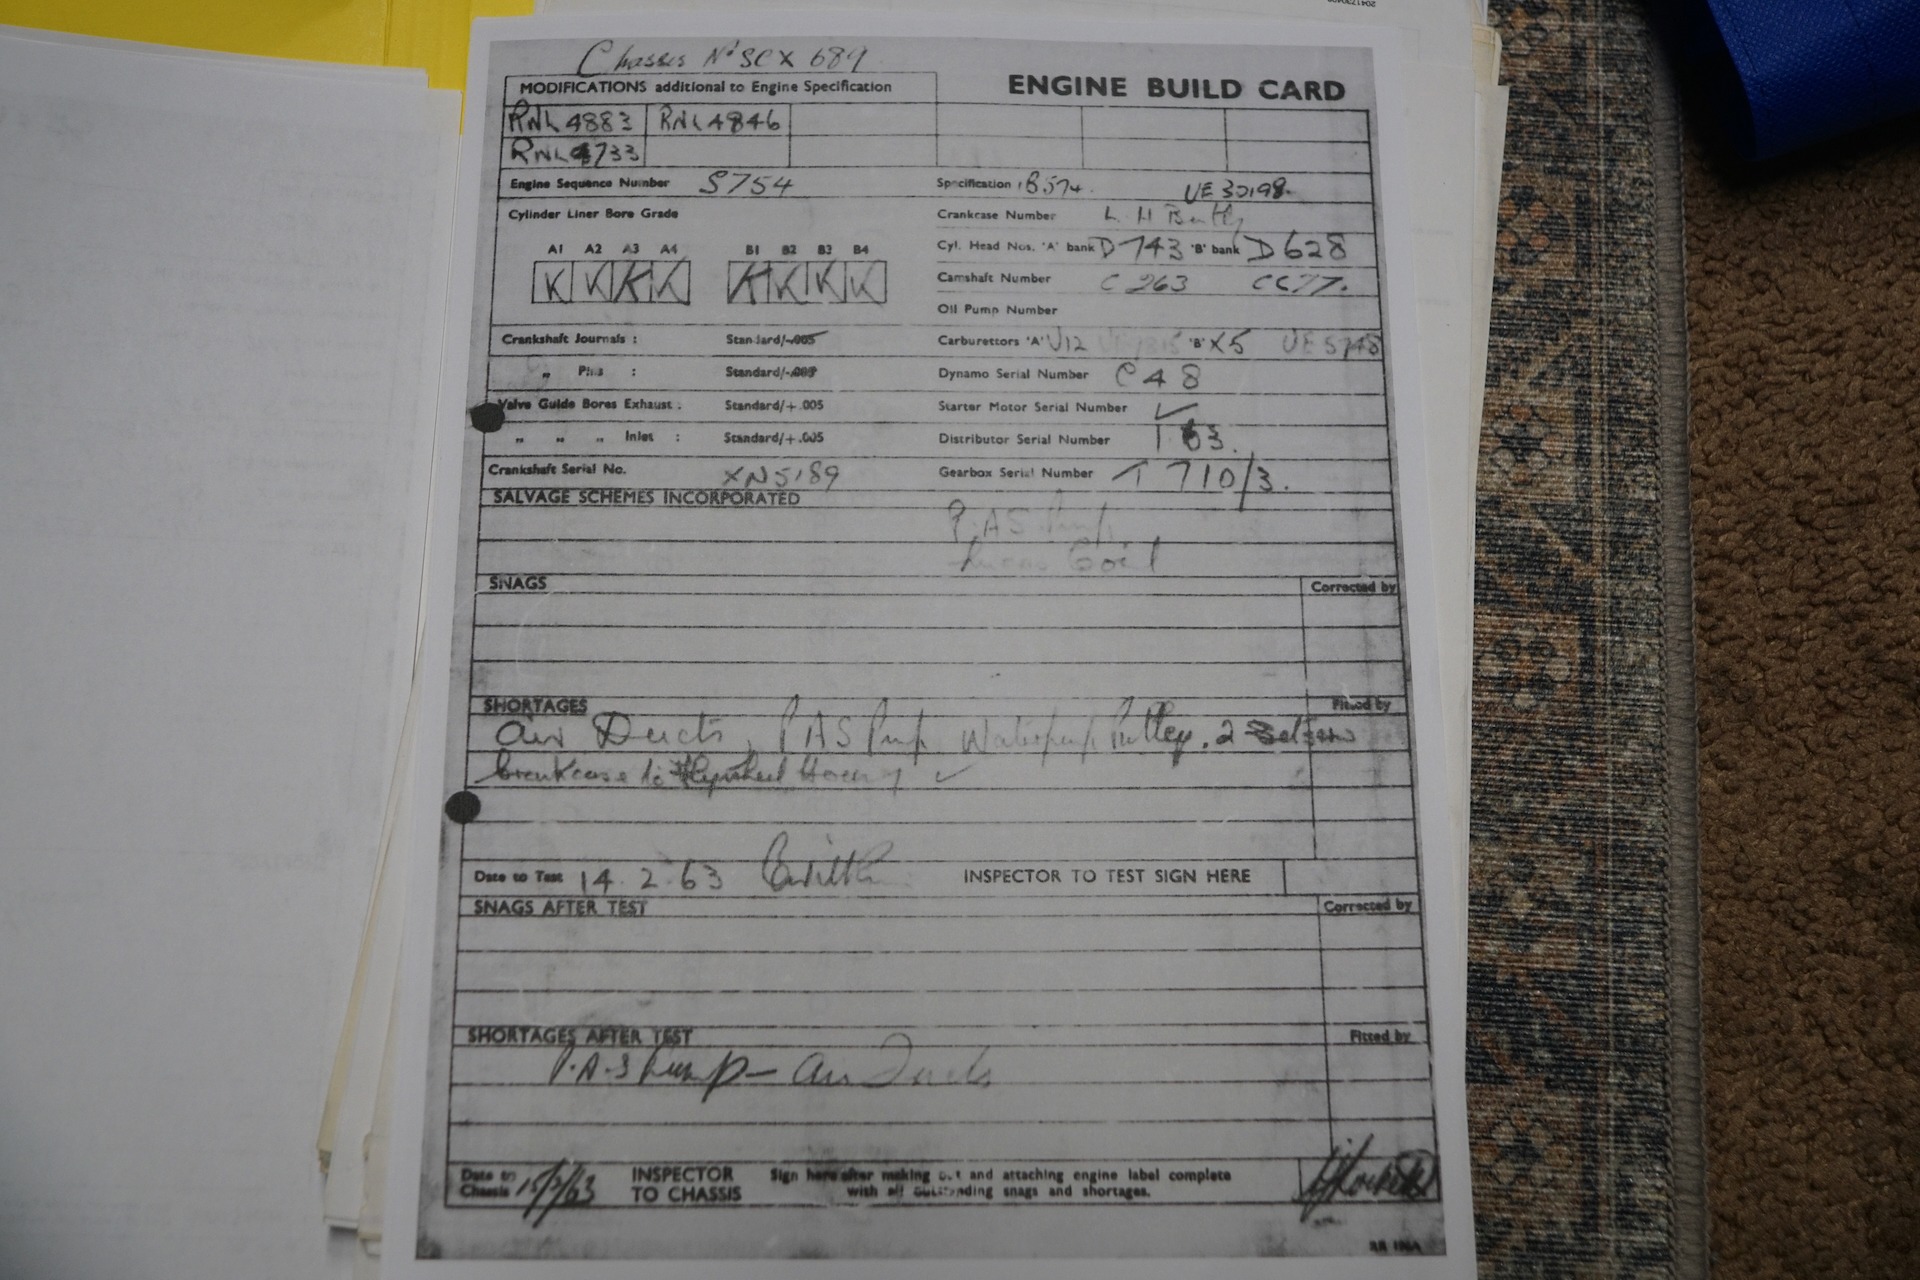 Chassis No SCX 689
MODIFICATIONS additional to Engine Specification
ENGINE BUILD CARD
RNL 4883 RNL 4846
RNL 4733
Engine Sequence Number S754 Specification B574. UE 30198.
Cylinder Liner Bore Grade Crankcase Number L H
A1 A2 A3 A4 B1 B2 B3 B4 Cyl. Head Nos. 'A' bank D 743 'B' bank D 628
K K K K K K K K
Camshaft Number C 263 CC77.
Oil Pump Number
Crankshaft Journals : Standard/-.005 Carburettors 'A' U12 'B' X5 UE 5748
" Pins : Standard/-.005 Dynamo Serial Number C48
Valve Guide Bores Exhaust : Standard/+.005 Starter Motor Serial Number ✓
" " " Inlet : Standard/+.005 Distributor Serial Number
Crankshaft Serial No. XN5189 Gearbox Serial Number T 710/3.
SALVAGE SCHEMES INCORPORATED
P.A.S Pump.
Lucas Coil
SNAGS Corrected by
SHORTAGES Fitted by
Air Ducts, PAS Pump Waterpump Pulley, 2
Crankcase to Flywheel ✓
Date to Test 14.2.63 INSPECTOR TO TEST SIGN HERE
SNAGS AFTER TEST Corrected by
SHORTAGES AFTER TEST Fitted by
P.A.S Pump - Air Ducts
Date to Chassis INSPECTOR TO CHASSIS Sign here after making out and attaching engine label complete
with all outstanding snags and shortages.